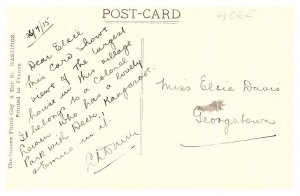 POST-CARD
Dear Elsie
This card shows
views of the largest
house in this village
It belongs to a Colonel
who has a lovely
Park with Deer, Kangaroos
& Emus in it.
Miss Elsie Davis
Georgetown
The Sussex Photo Coy. 4 St. HASTINGS.
Printed in France